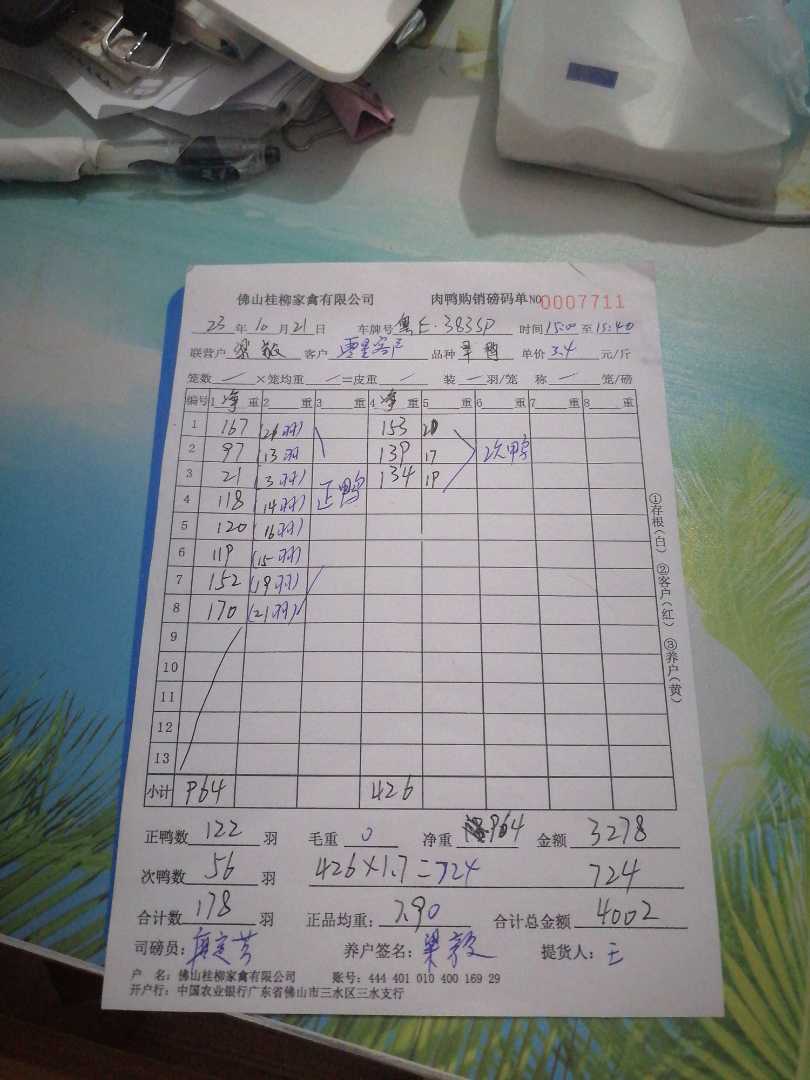 佛山桂柳家禽有限公司 肉鸭购销磅码单 NO 0007711
23 年 10 月 21 日 车牌号 粤E·3835P 时间 15:00 至 15:40
联营户 梁毅 客户 零星客户 品种 单价 3.4 元/斤
笼数 — ×笼均重 — =皮重 — 装 — 羽/笼 称 — 笼/磅
编号 1 净 重 2 重 3 重 4 净 重 5 重 6 重 7 重 8 重
1 167 (21羽) 153 20
2 97 (13羽 139 17 次鸭
3 21 (3羽) 134 19
4 118 (14羽) 正鸭
5 120 (16羽)
6 119 (15羽)
7 152 (19羽)
8 170 (21羽)
9
10
11
12
13
小计 964 426
正鸭数 122 羽 毛重 0 净重 964 金额 3278
次鸭数 56 羽 426×1.7=724 724
合计数 178 羽 正品均重: 7.90 合计总金额 4002
司磅员: 养户签名: 梁毅 提货人: 王
户 名: 佛山桂柳家禽有限公司 账号: 444 401 010 400 169 29
开户行: 中国农业银行广东省佛山市三水区三水支行
①存根(白) ②客户(红) ③养户(黄)